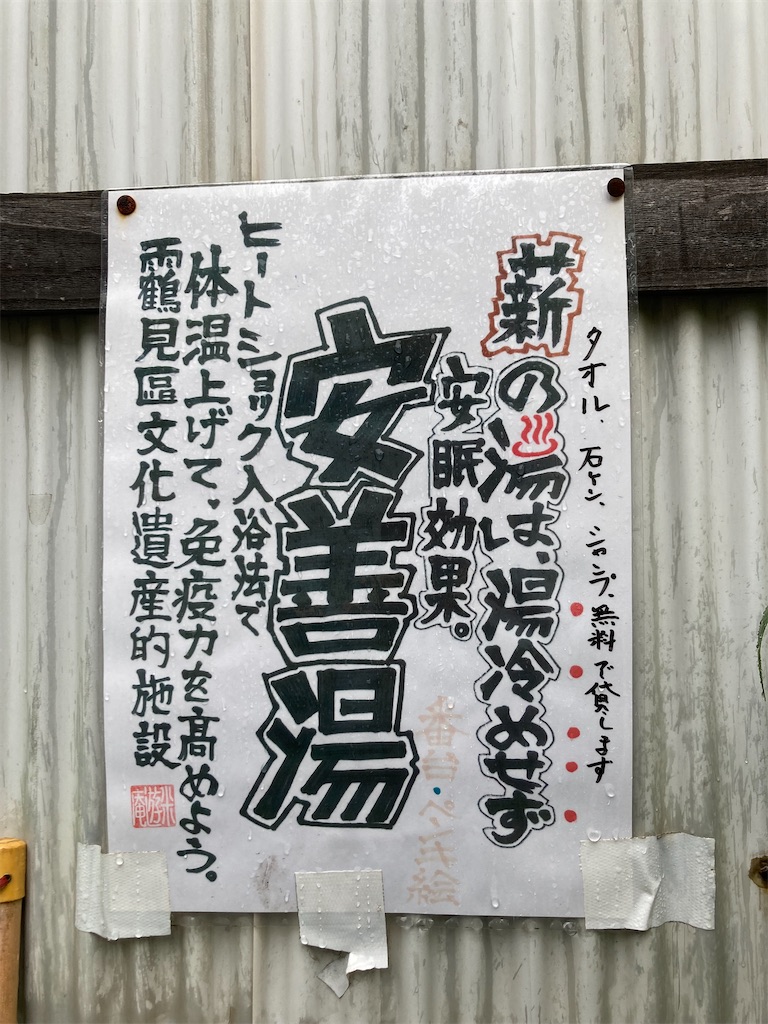 タオル、石ケン、シャンプ、無料で貸します
薪の湯は、湯冷めせず
安眠効果。
安善湯
ヒートショック入浴法で
体温上げて、免疫力を高めよう。
霸鶴見區文化遺産的施設